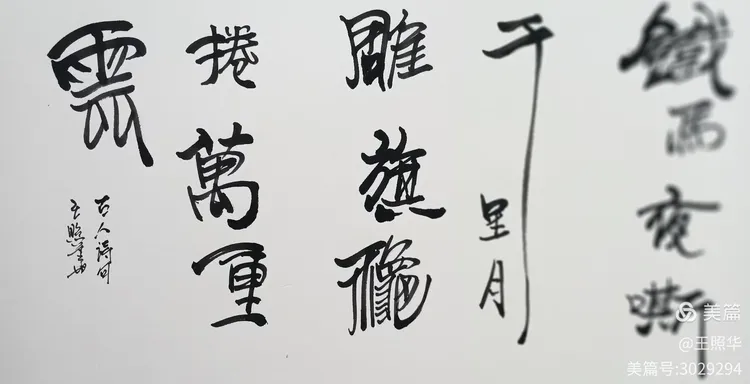 鐵馬夜嘶
千里月
雕旗穐
捲萬重
雲
古人詩句
王照華書
美篇
@王照华
美篇号:3029294